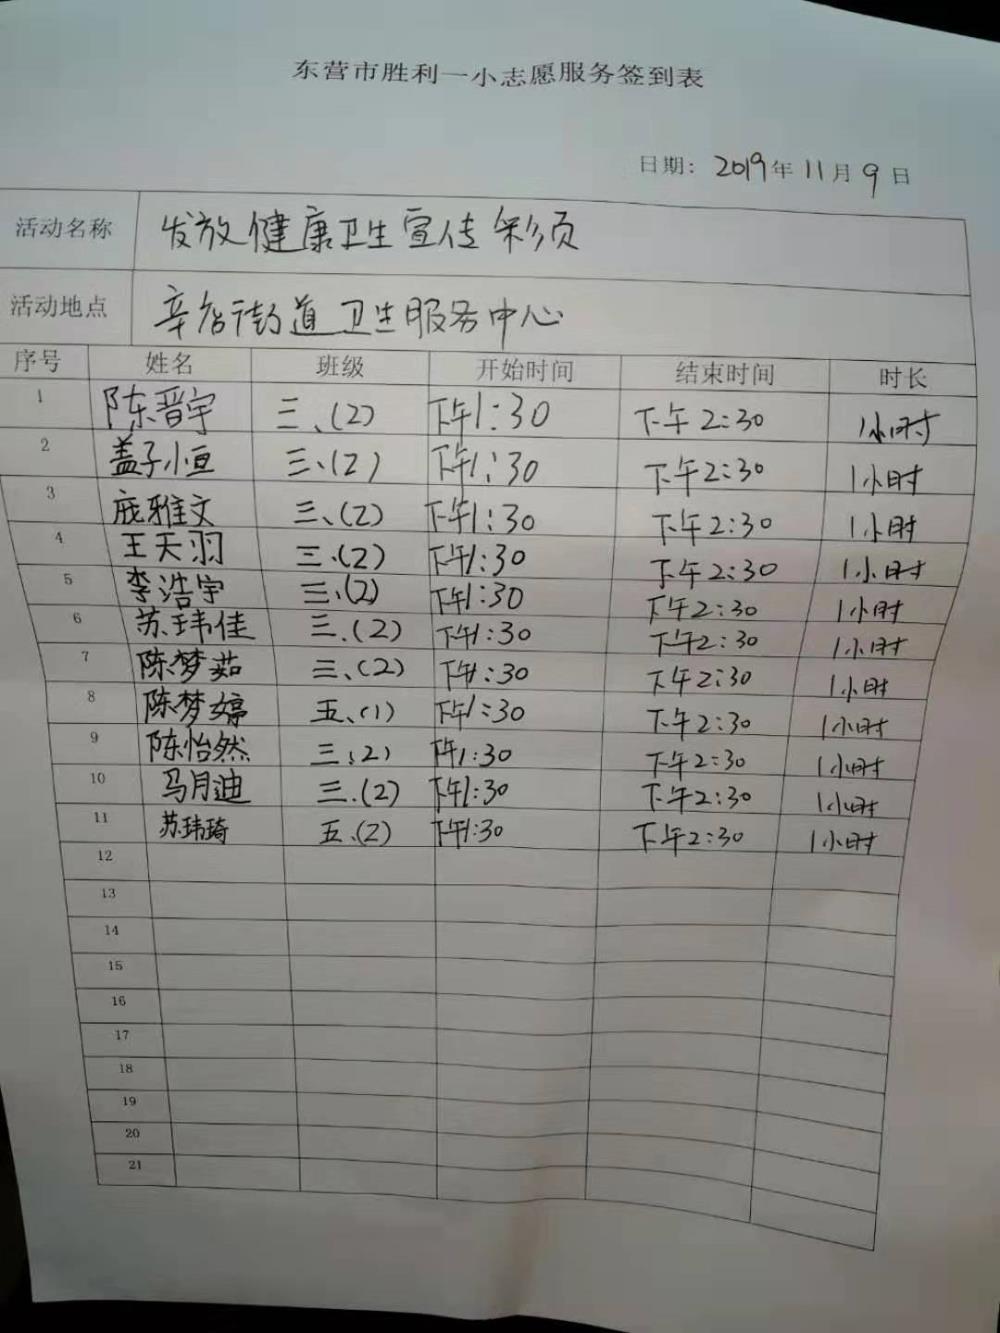 东营市胜利一小志愿服务签到表
日期: 2019年11月9日
活动名称 发放健康卫生宣传彩页
活动地点 辛店街道卫生服务中心
序号 姓名 班级 开始时间 结束时间 时长
1 陈晋宇 三、(2) 下午1:30 下午2:30 1小时
2 盖子小恒 三、(2) 下午1:30 下午2:30 1小时
3 庞雅文 三、(2) 下午1:30 下午2:30 1小时
4 王天羽 三.(2) 下午1:30 下午2:30 1小时
5 李浩宇 三、(2) 下午1:30 下午2:30 1小时
6 苏玮佳 三.(2) 下午1:30 下午2:30 1小时
7 陈梦茹 三、(2) 下午1:30 下午2:30 1小时
8 陈梦婷 五、(1) 下午1:30 下午2:30 1小时
9 陈怡然 三、2) 下午1:30 下午2:30 1小时
10 马月迪 三.(2) 下午1:30 下午2:30 1小时
11 苏玮琦 五、(2) 下午1:30 下午2:30 1小时
12
13
14
15
16
17
18
19
20
21